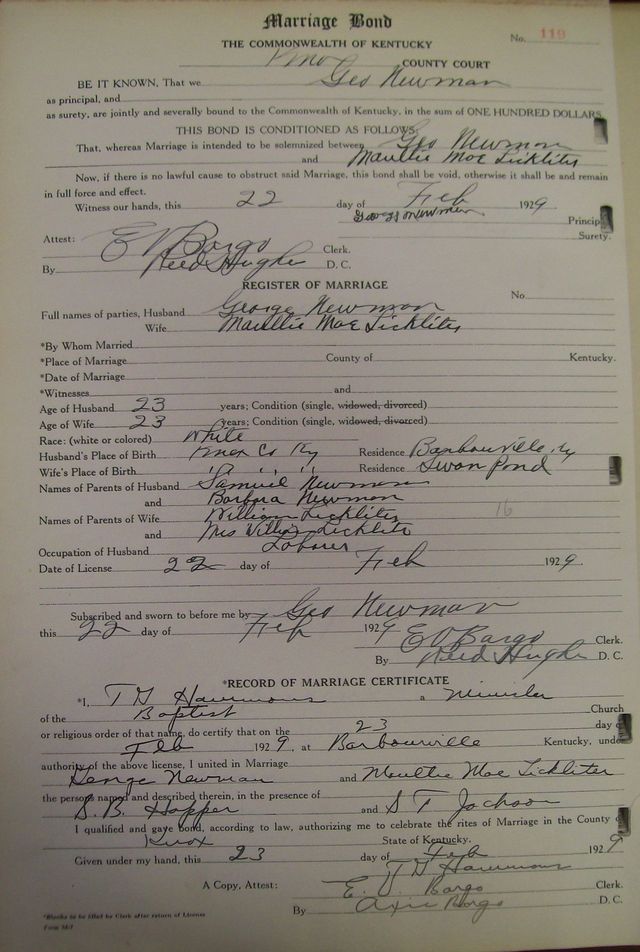 Marriage Bond
No. 119
THE COMMONWEALTH OF KENTUCKY
Knox COUNTY COURT
BE IT KNOWN, That we Geo Newman
as principal, and
as surety, are jointly and severally bound to the Commonwealth of Kentucky, in the sum of ONE HUNDRED DOLLARS.
THIS BOND IS CONDITIONED AS FOLLOWS:
That, whereas Marriage is intended to be solemnized between Geo Newman
and Maullie Mae Lickliter
Now, if there is no lawful cause to obstruct said Marriage, this bond shall be void, otherwise it shall be and remain
in full force and effect.
Witness our hands, this 22 day of Feb 1929
George Newman Princip
Surety.
Attest: E V Bargo Clerk.
By Reed Hughes D. C.
REGISTER OF MARRIAGE
No.
Full names of parties, Husband George Newman
Wife Maullie Mae Lickliter
*By Whom Married
*Place of Marriage County of Kentucky.
*Date of Marriage
*Witnesses and
Age of Husband 23 years; Condition (single, widowed, divorced)
Age of Wife 23 years; Condition (single, widowed, divorced)
Race: (white or colored) White
Husband's Place of Birth Knox Co Ky Residence Barbourville, Ky
Wife's Place of Birth " " " Residence Swan Pond
Names of Parents of Husband Samuel Newman
and Barbara Newman
Names of Parents of Wife William Lickliter
16
and Mrs Lickliter
Occupation of Husband Laborer
Date of License 22 day of Feb 1929.
Subscribed and sworn to before me by Geo Newman
this 22 day of Feb 1929 E V Bargo Clerk.
By Reed Hughes D. C.
*RECORD OF MARRIAGE CERTIFICATE
*I, T G Hammons a Minister
of the Baptist Church
or religious order of that name, do certify that on the 23 day o
Feb 1929, at Barbourville Kentucky, unde
authority of the above license, I united in Marriage
George Newman and Maullie Mae Lickliter
the persons named and described therein, in the presence of
S. B. Hopper and S T Jackson
I qualified and gave bond, according to law, authorizing me to celebrate the rites of Marriage in the County o
Knox State of Kentucky.
Given under my hand, this 23 day of Feb 1929
T G Hammons
A Copy, Attest: E. V Bargo Clerk.
By Bargo D. C.
*Blanks to be filled by Clerk after return of License